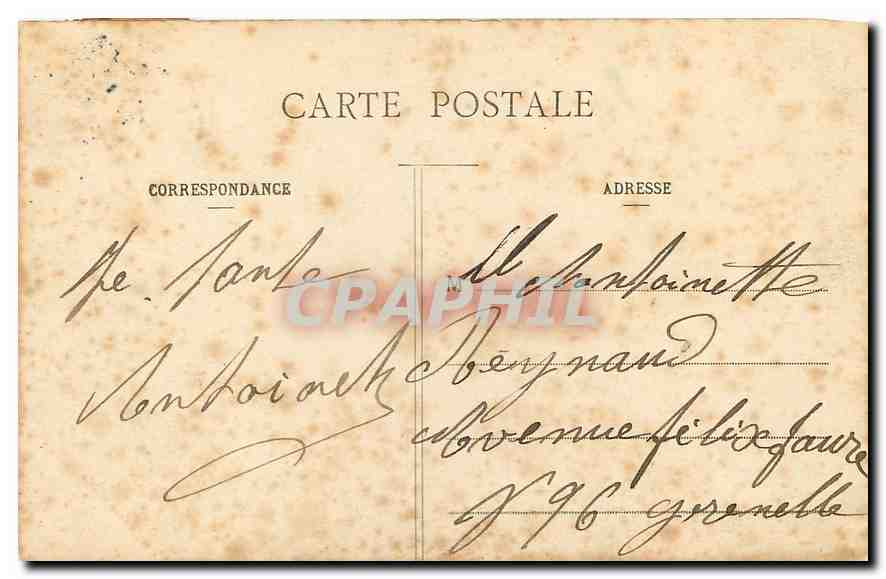 CARTE POSTALE
CORRESPONDANCE
Tante
Antoinette
ADRESSE
Mlle Antoinette
Reynaud
Avenue félix faure
N° 96 grenelle
CPAPHIL